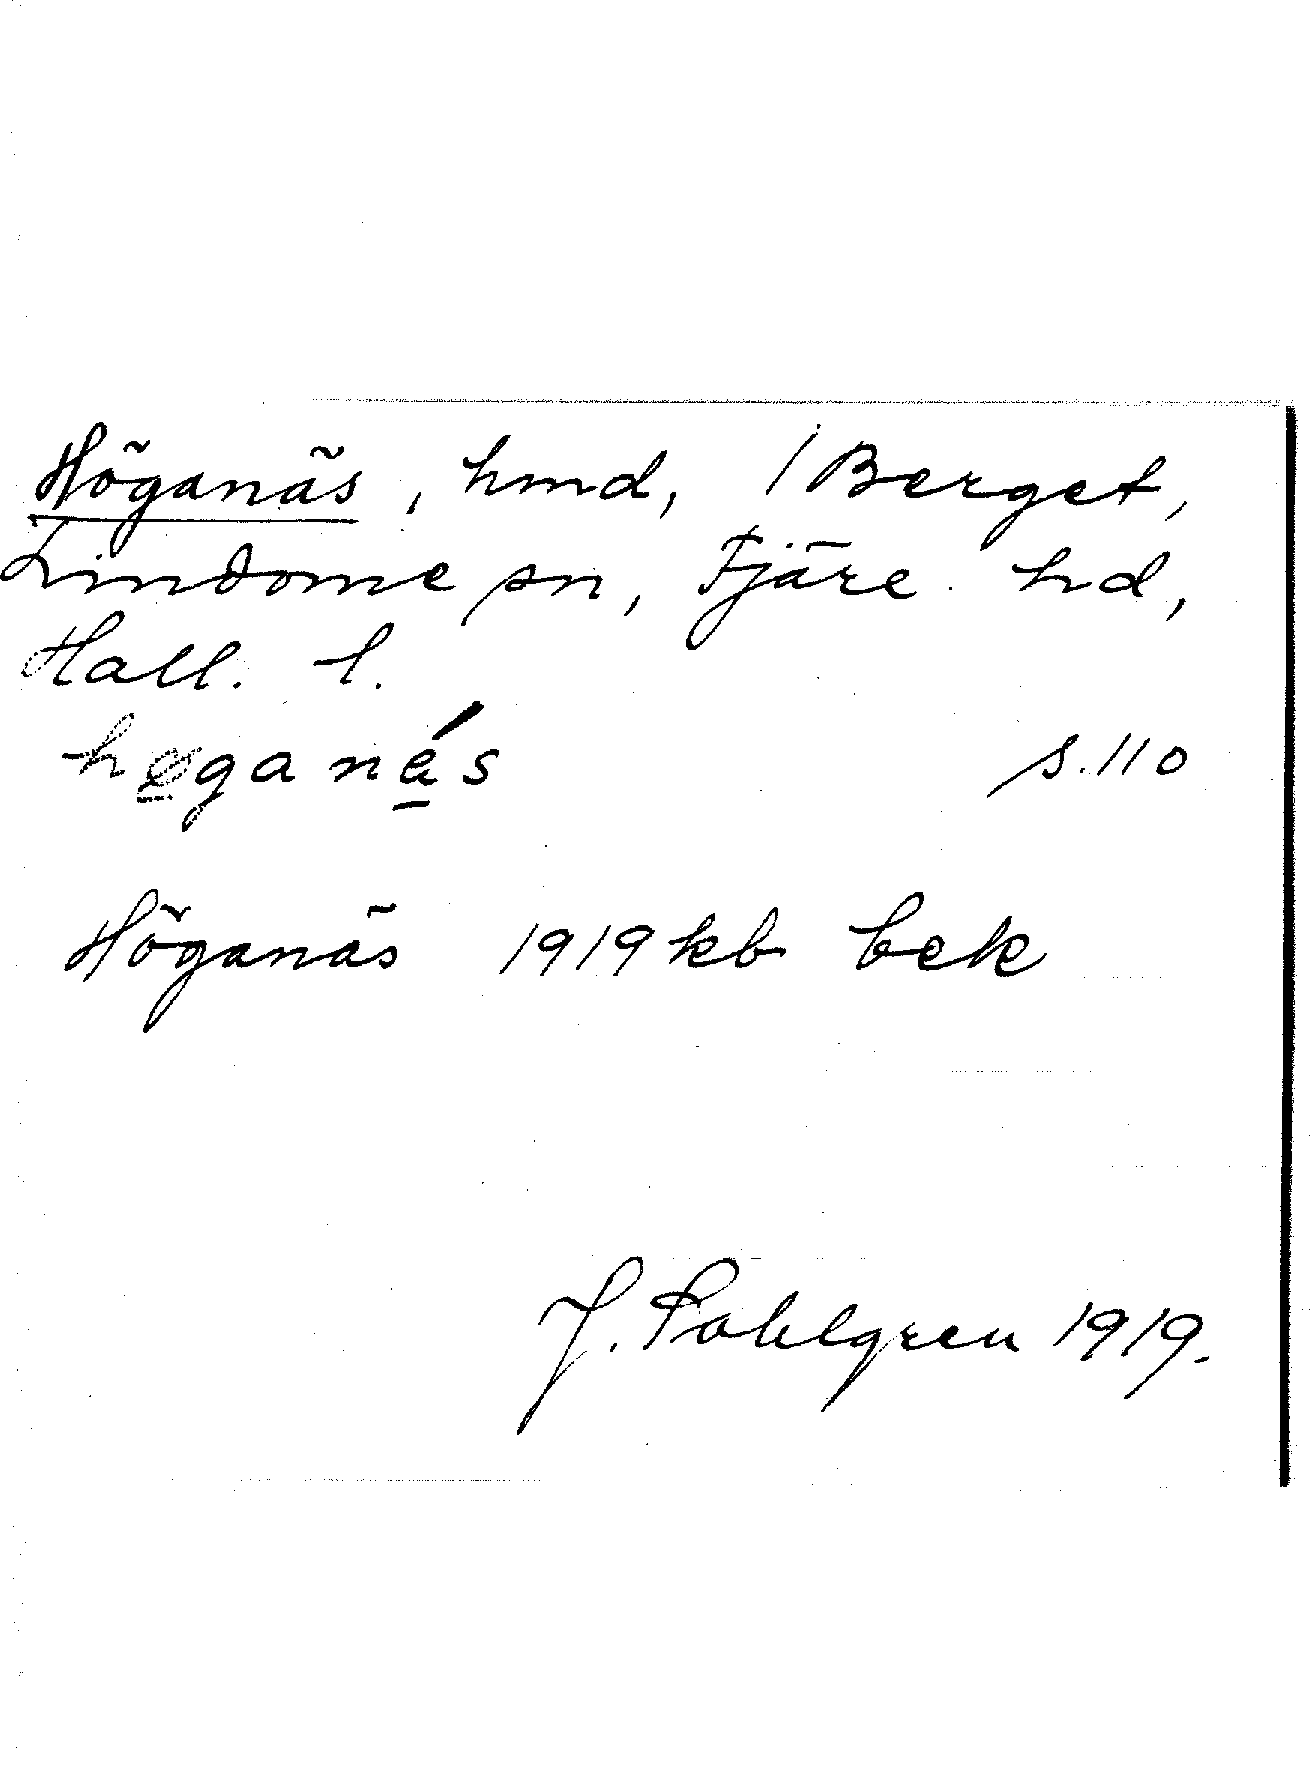 Höganäs, hmd, / Berget,
Lindome sn, Fjäre hd,
Hall. l.
høganás s. 110
Höganäs 1919 kb bek
J. Pohlgren 1919.